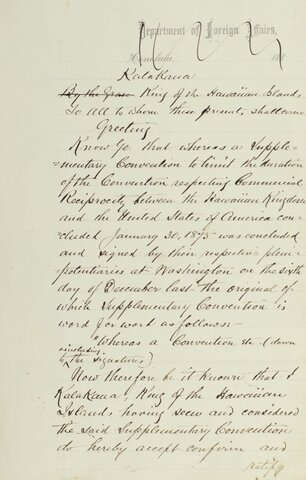 Department of Foreign Affairs,
Honolulu, 188
Kalakaua
By the Grace King of the Hawaiian Islands
To all to whom these present, shall come
Greeting
Know Ye that whereas a Supple-
mentary Convention to limit the duration
of the Convention respecting Commercial
Reciprocity between the Hawaiian Kingdom
and the United States of America con-
cluded January 30, 1875 was concluded
and signed by their respective pleni-
potentiaries at Washington on the sixth
day of December last the original of
which Supplementary Convention is
word for word as follows:-
"Whereas a Convention &c (down
including
to the signatures)
Now therefore be it known that I
Kalakaua, King of the Hawaiian
Islands having seen and considered
the said Supplementary Convention
do hereby accept confirm and
ratify